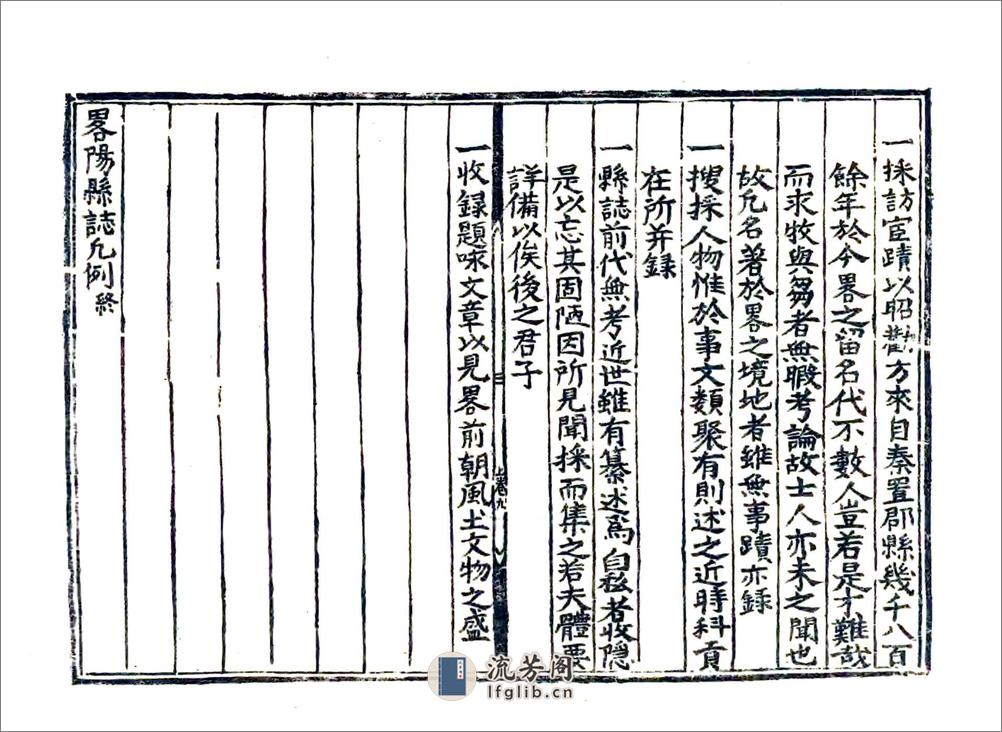 一採訪宦蹟以昭勸方來自秦置郡縣幾千八百
餘年於今畧之留名代不數人豈若是才難哉
而求牧與芻者無暇考論故士人亦未之聞也
故凡名著於畧之境地者雖無事蹟亦錄
一搜採人物惟於事文類聚有則述之近時科貢
在所并録
一縣誌前代無考近世雖有纂述爲自私者收隱
是以忘其固陋因所見聞採而集之若夫體要
詳備以俟後之君子
三
上卷九
一收録題咏文章以見畧前朝風土文物之盛
畧陽縣誌凡例終
流芳阁
lfglib.cn